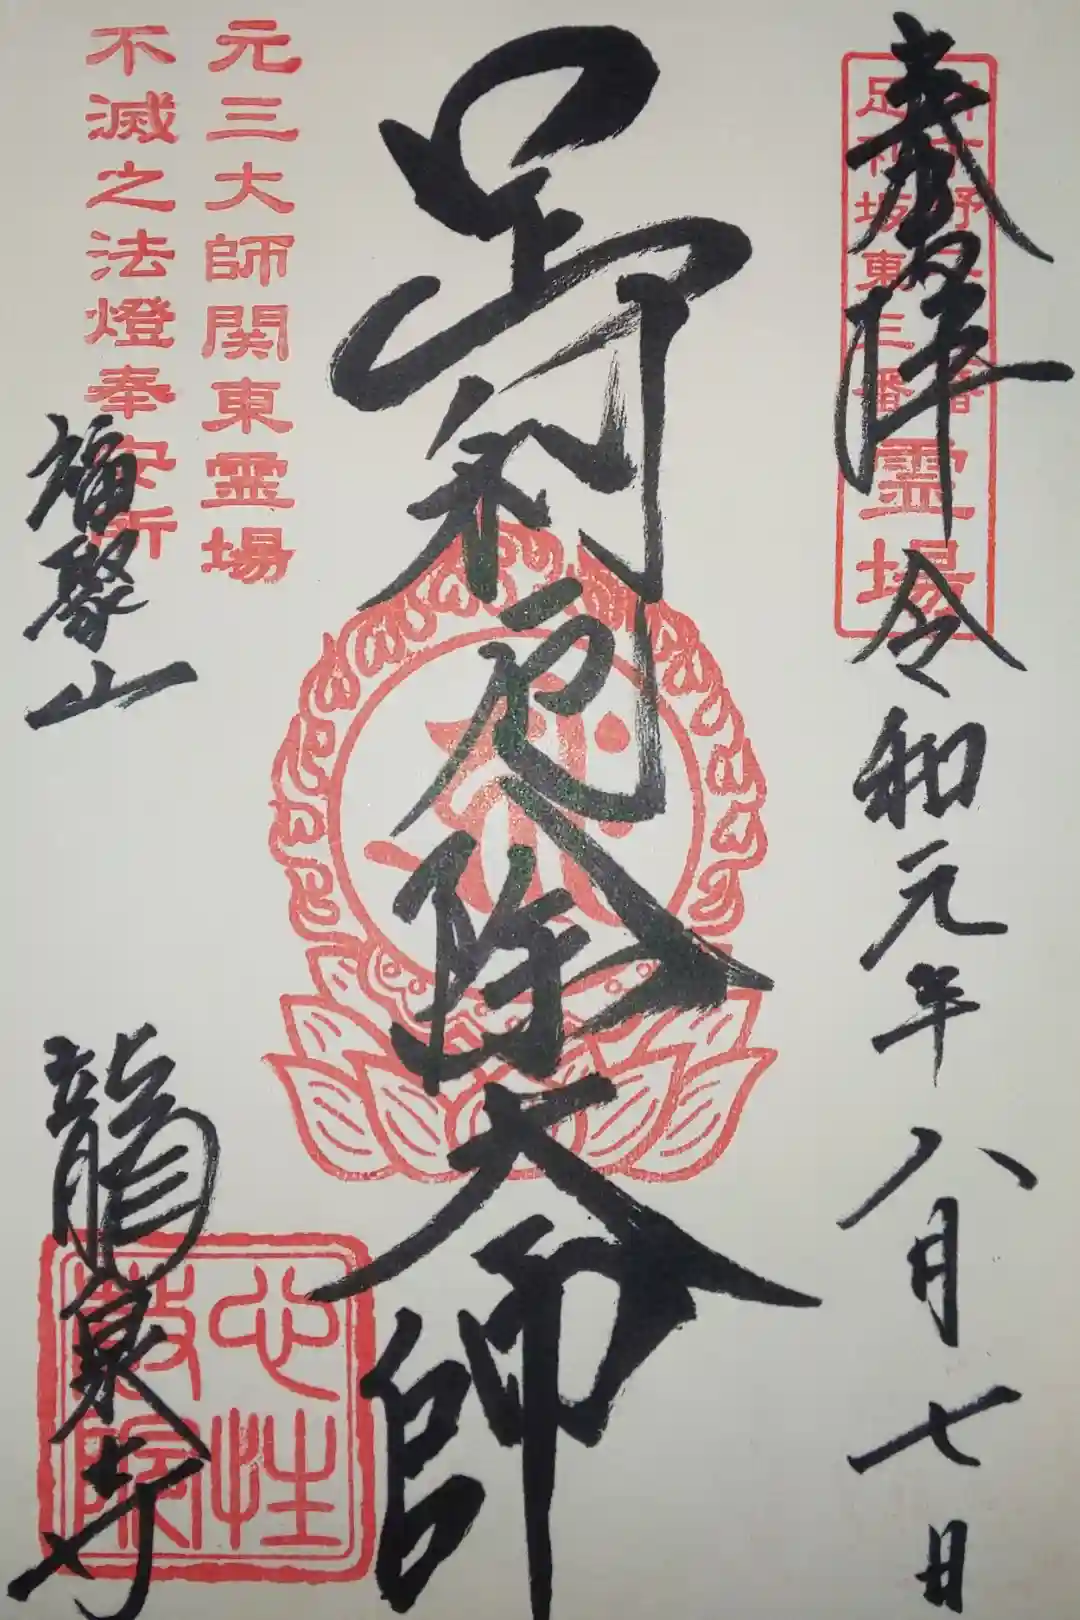 奉拝
令和元年八月七日
足利坂東三番霊場
足利厄除大師
元三大師関東霊場
不滅之法燈奉安所
福聚山
龍泉寺
心性